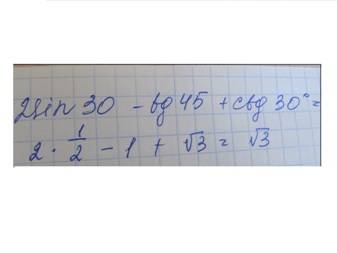 2sin 30 - tg 45 + ctg 30° =
2 · 1/2 - 1 + √3 = √3